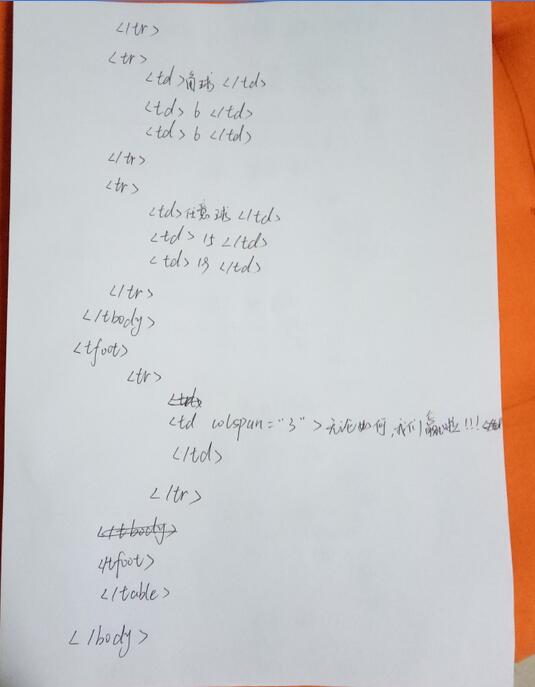 </tr>
<tr>
<td>角球</td>
<td>6</td>
<td>6</td>
</tr>
<tr>
<td>任意球</td>
<td>15</td>
<td>19</td>
</tr>
</tbody>
<tfoot>
<tr>
<td colspan="3">无论如何,我们赢啦!!!
</td>
</tr>
</tbody>
</tfoot>
</table>
</body>